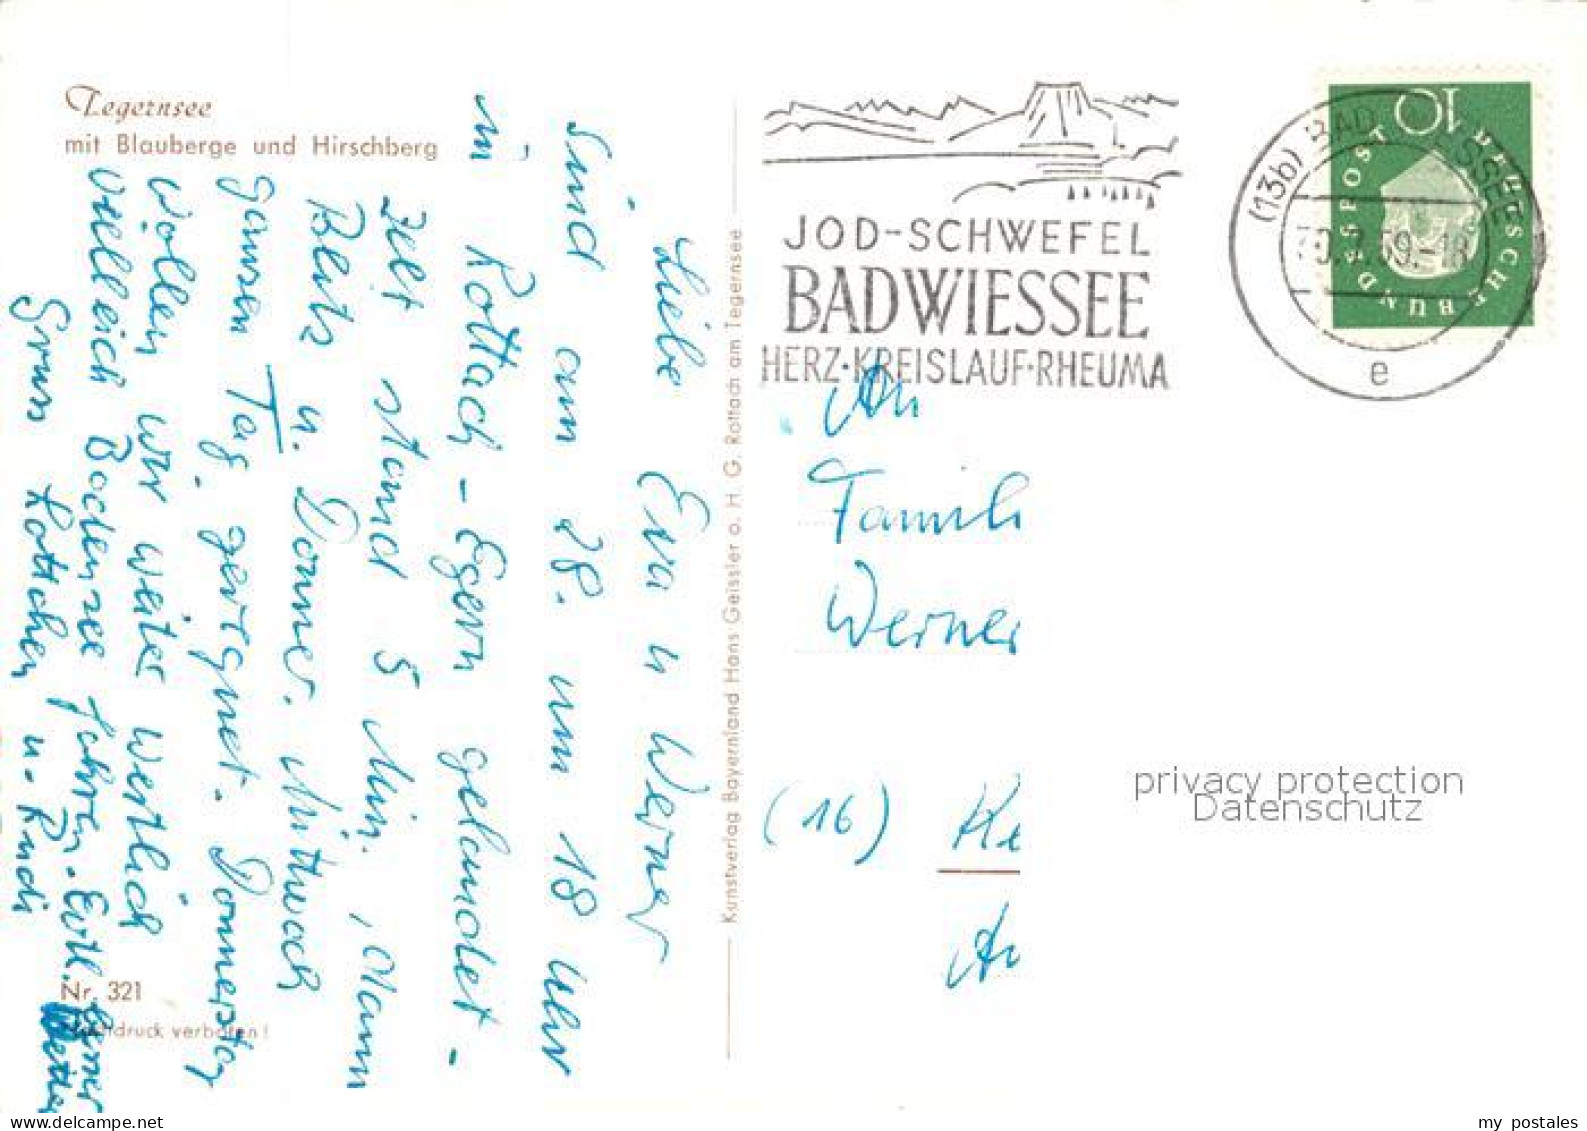 Tegernsee
mit Blauberge und Hirschberg
Liebe Eva u Werner
Sind am 28. um 18 Uhr
in Rottach-Egern gelandet-
Zelt stand 5 Min., dann
Blitz u. Donner. Mittwoch
ganzen Tag geregnet. Donnerstag
wollen wir weiter
viellleich Bodensee fahren. Evtl.
Gruss Lottchen u. Rudi
Nr. 321
verboten!
Kunstverlag Bayernland Hans Geissler o. H. G. Rottach am Tegernsee
JOD-SCHWEFEL
BADWIESSEE
HERZ·KREISLAUF·RHEUMA
(13b) BAD WIESSEE
e
10
DEUTSCHE BUNDESPOST
An
Famili
Werner
(16) Ke
privacy protection
Datenschutz
my postales